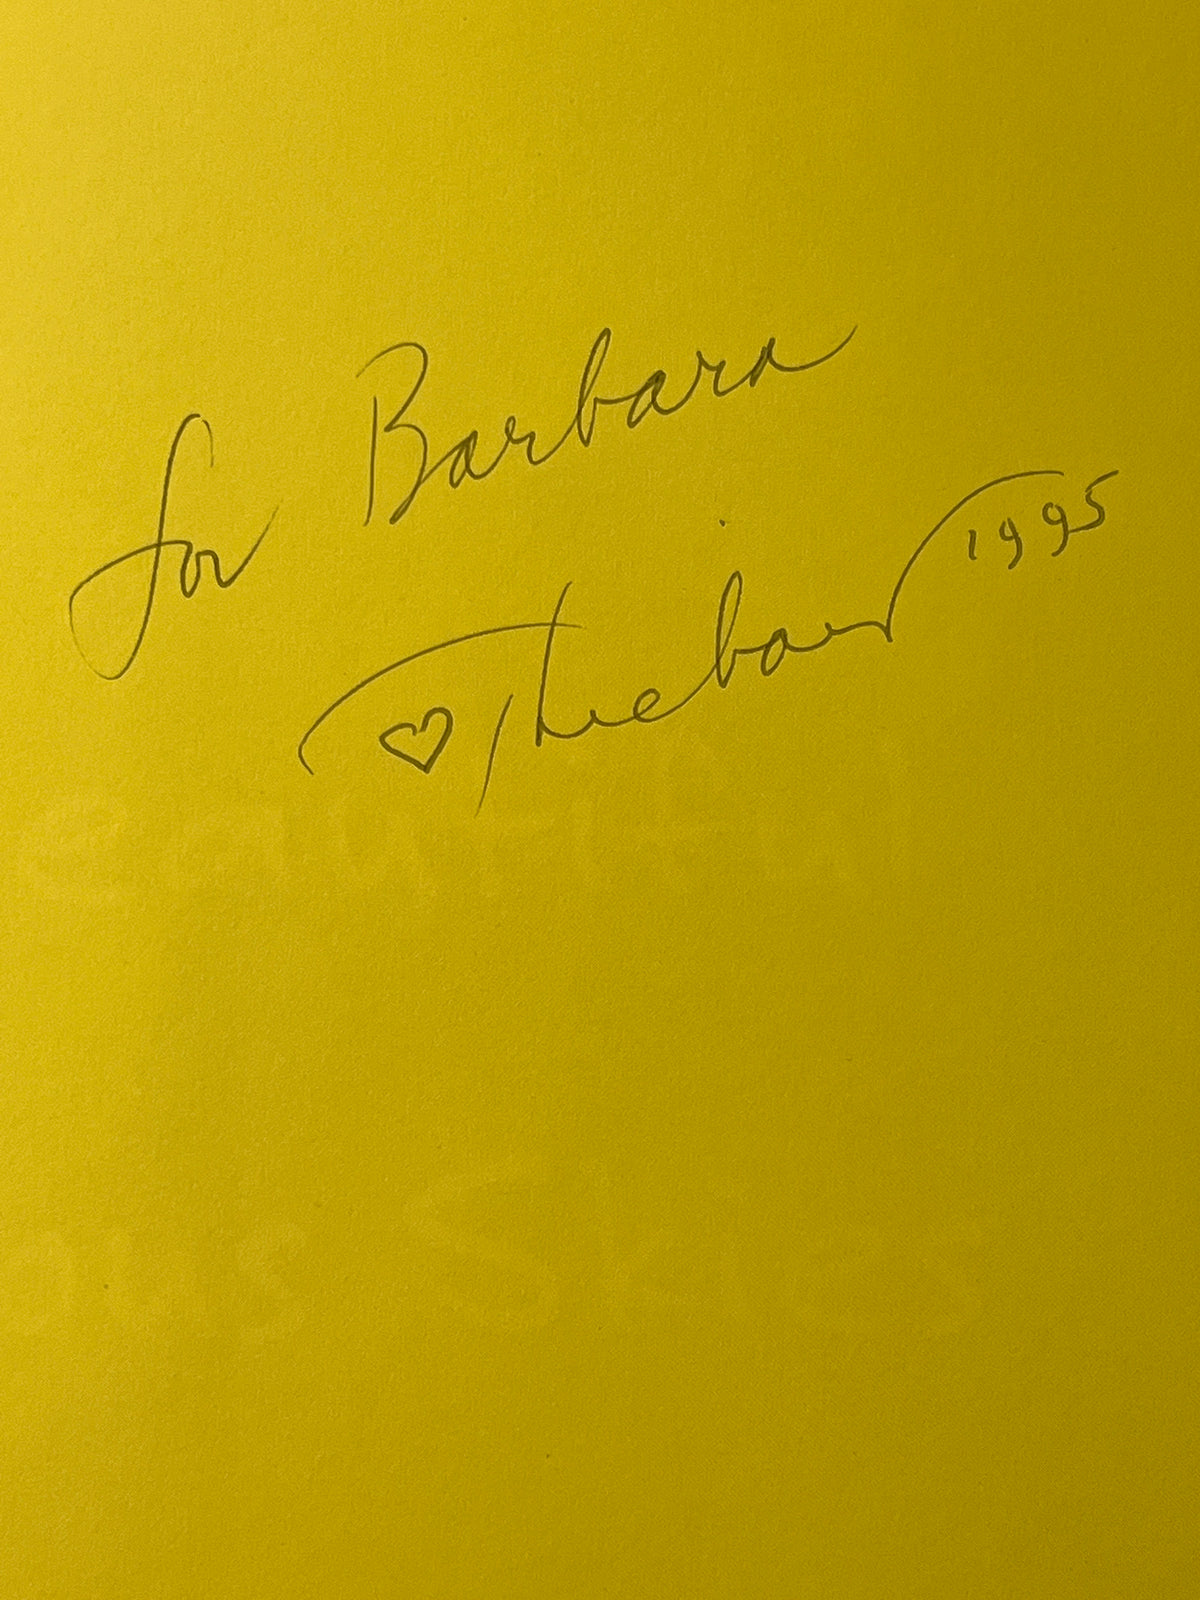 for Barbara
♡ Thiebaud 1995